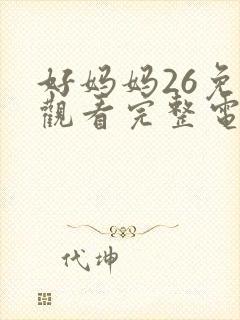 好妈妈26免
觀看完整電
代坤